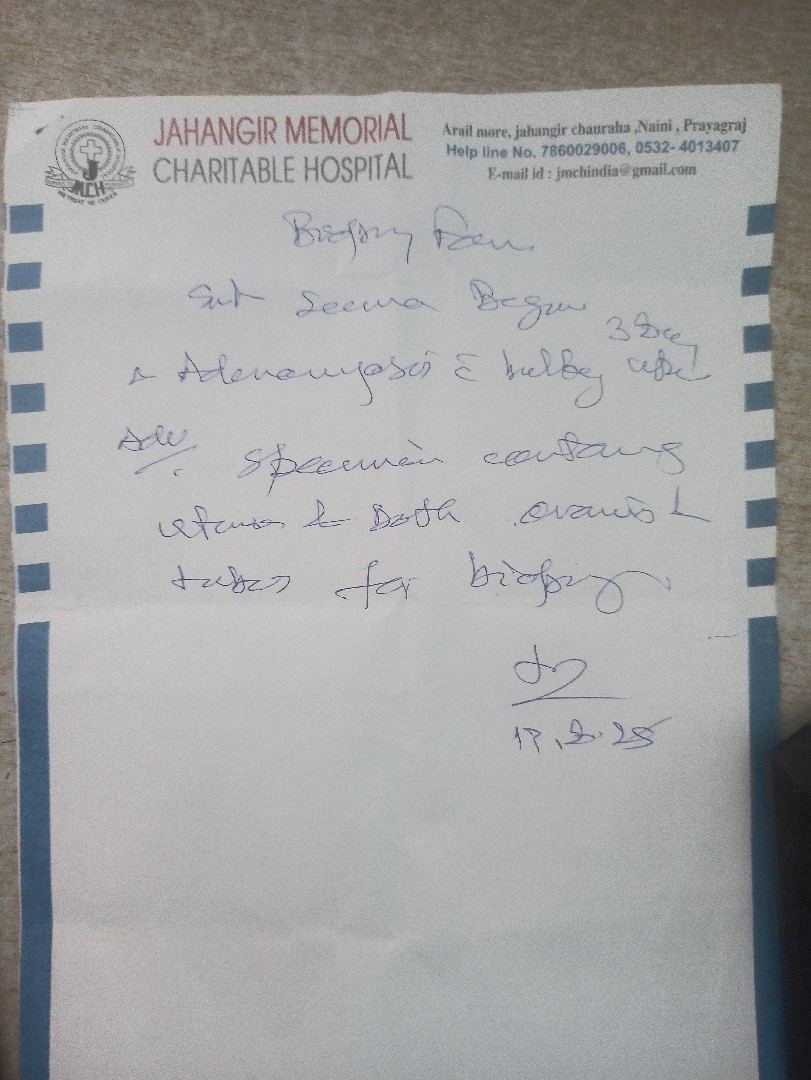 JAHANGIR MEMORIAL
CHARITABLE HOSPITAL
Arail more, jahangir chauraha ,Naini , Prayagraj
Help line No. 7860029006, 0532- 4013407
E-mail id : jmchindia@gmail.com
JMCH
Biopsy Form
Smt Seema Begum
Adenomyosis c bulky
Adv
Specimen containg
uterus & Both ovaries &
tubes for biopsy